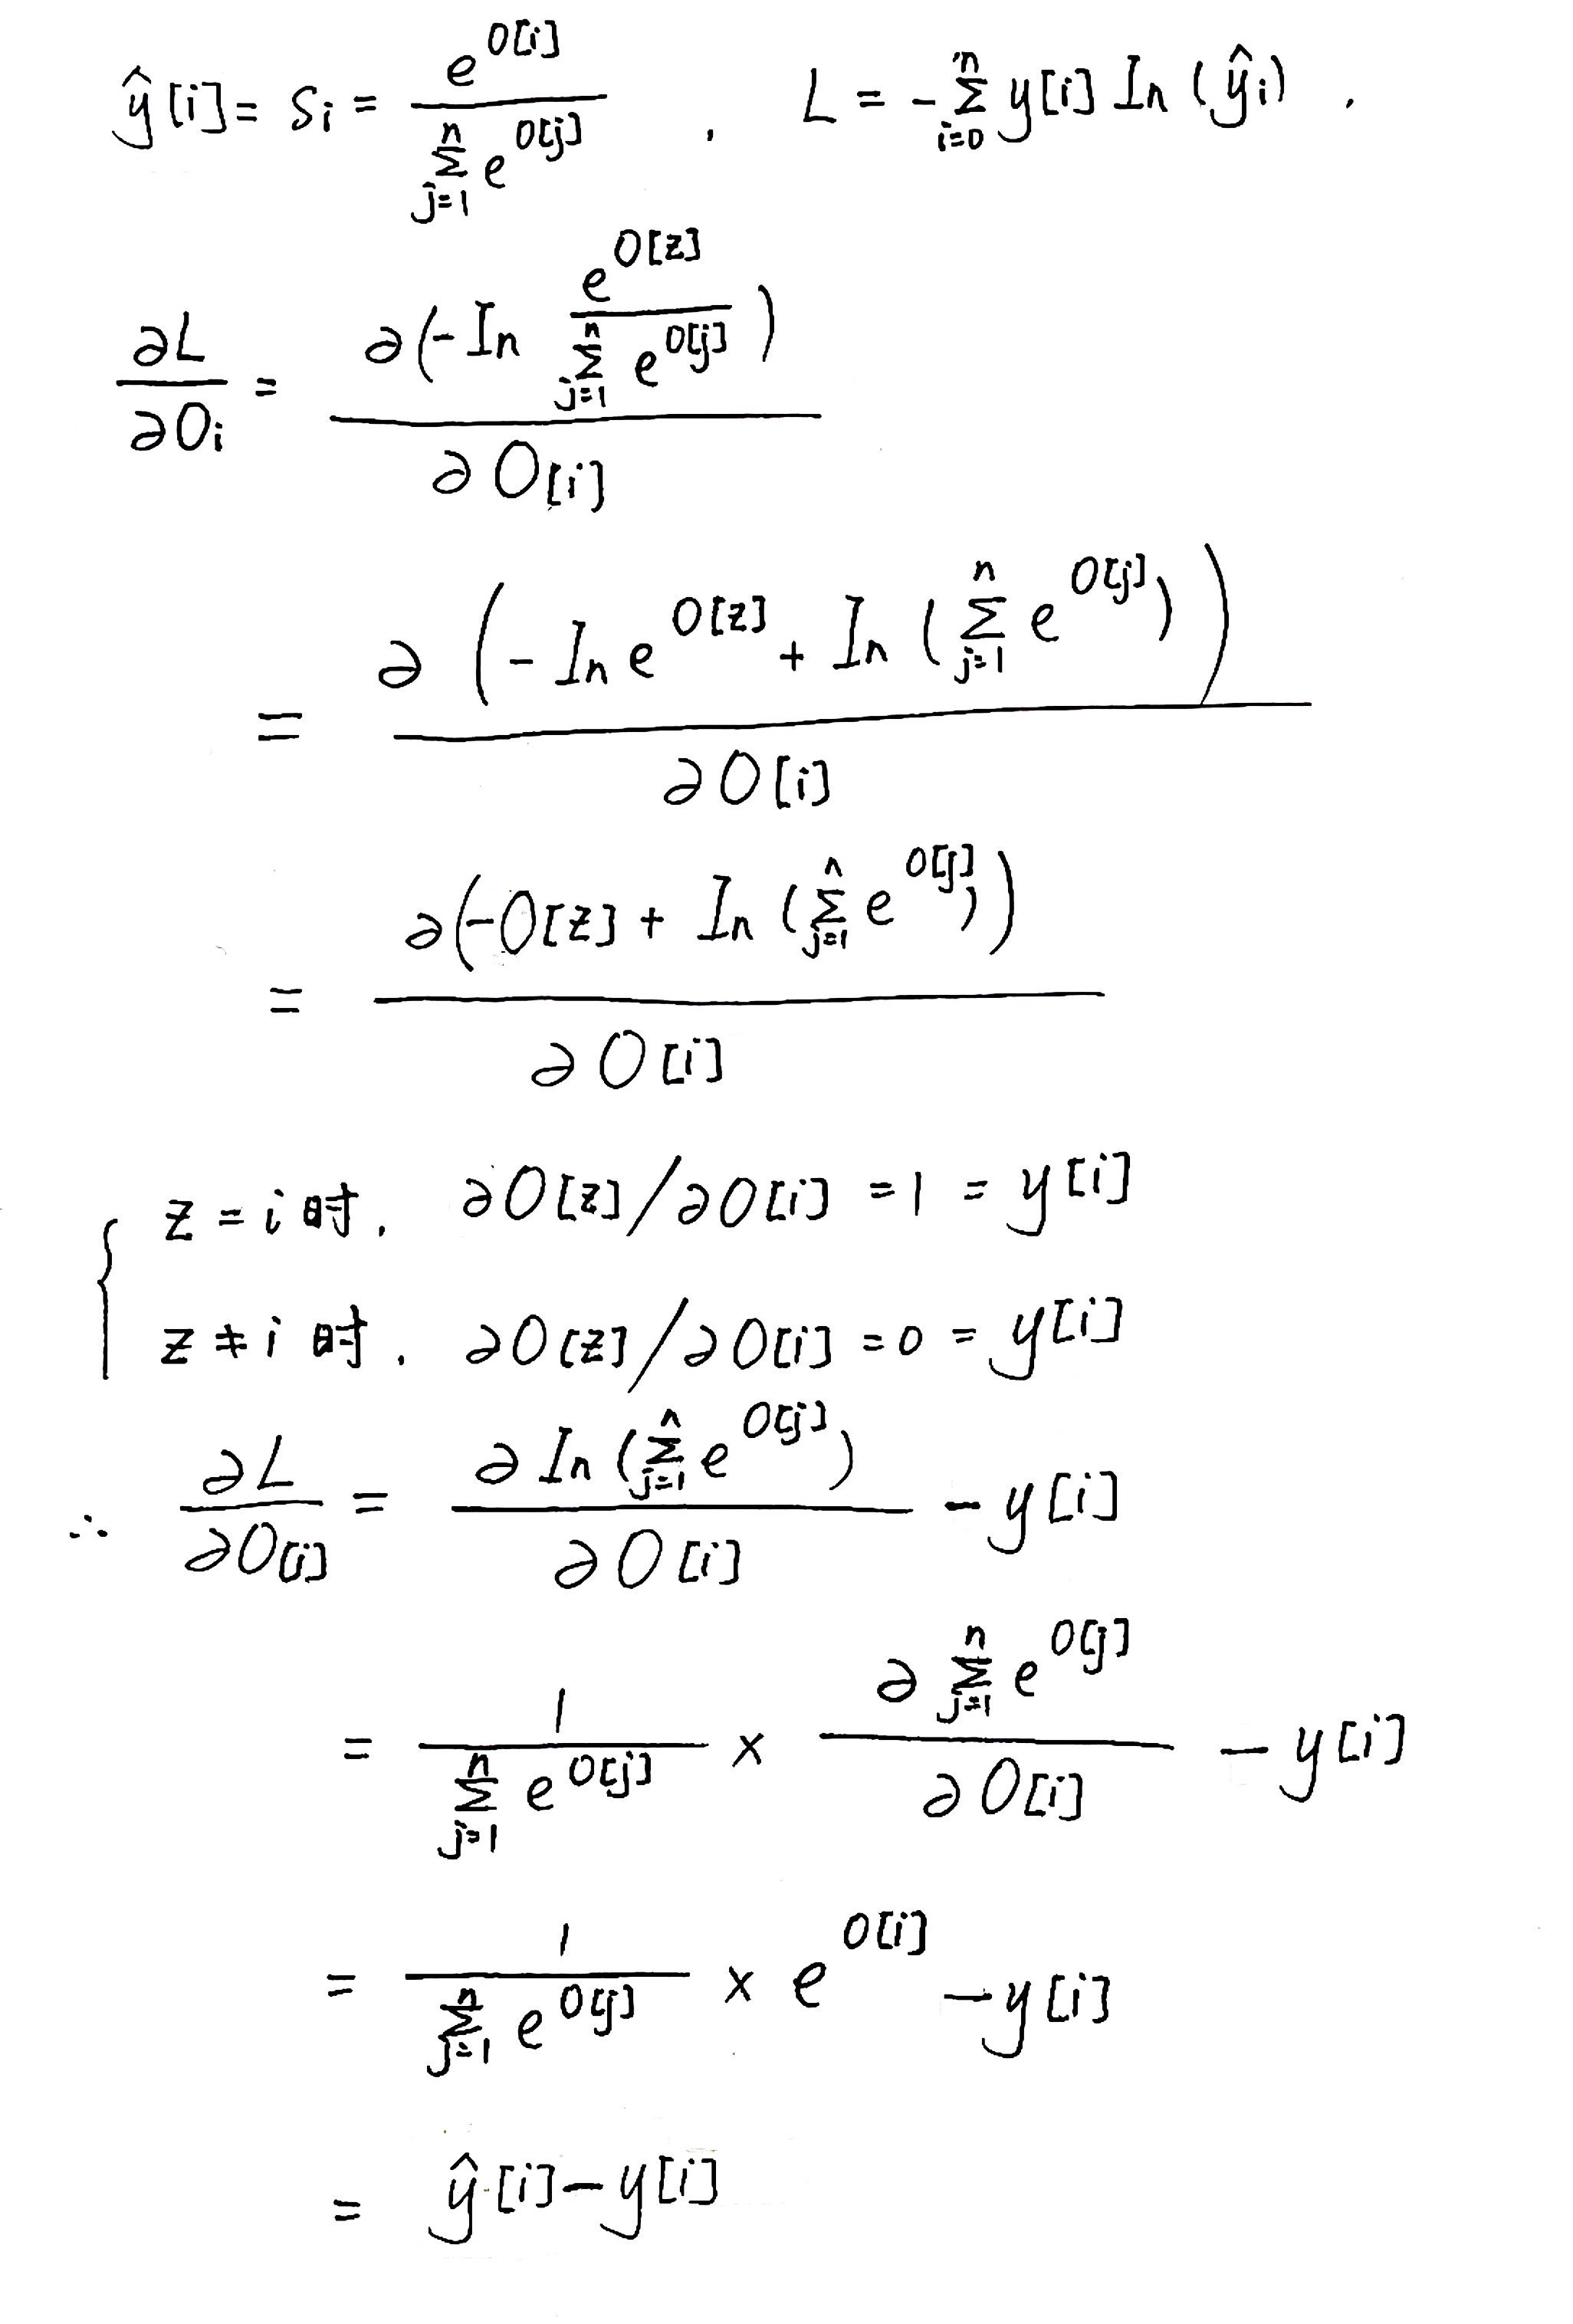 ŷ[i] = Si = e^{O[i]} / ∑_{j=1}^{n} e^{O[j]} , L = -∑_{i=0}^{n} y[i] In (ŷi) .
∂L/∂Oi = ∂(-In e^{O[z]} / ∑_{j=1}^{n} e^{O[j]}) / ∂O[i]
= ∂(-In e^{O[z]} + In (∑_{j=1}^{n} e^{O[j]})) / ∂O[i]
= ∂(-O[z] + In (∑_{j=1}^{n} e^{O[j]})) / ∂O[i]
{ z = i 时. ∂O[z]/∂O[i] = 1 = y[i]
z ≠ i 时. ∂O[z]/∂O[i] = 0 = y[i]
∴ ∂L/∂O[i] = ∂ In (∑_{j=1}^{n} e^{O[j]}) / ∂O[i] - y[i]
= 1 / ∑_{j=1}^{n} e^{O[j]} × ∂ ∑_{j=1}^{n} e^{O[j]} / ∂O[i] - y[i]
= 1 / ∑_{j=1}^{n} e^{O[j]} × e^{O[i]} - y[i]
= ŷ[i] - y[i]